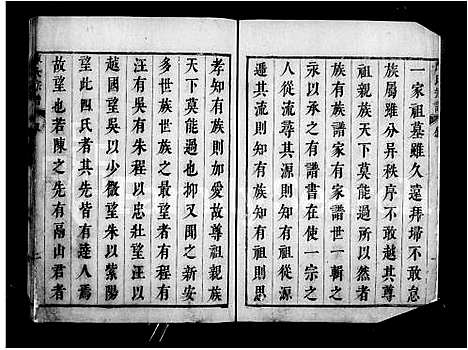 一家祖墓雖久遠拜埽不敢怠
族屬雖分异秩序不敢越其尊
祖親族天下莫能過所以新安
族有族譜家有家世一輯之
永以之有譜書在使一宗之
人從流尋其源則知有從源
遡其流則知有所従有所則思
孝知有族則加愛故尊祖親族
天下莫能過也抑又聞之新安
多世族世族之最望者有程有
汪有吳有朱程以忠壯望汪以
越國望吳以少微望朱以紫陽
望此四氏者其先皆有達人焉
故望也若陳之先有鬲山君者